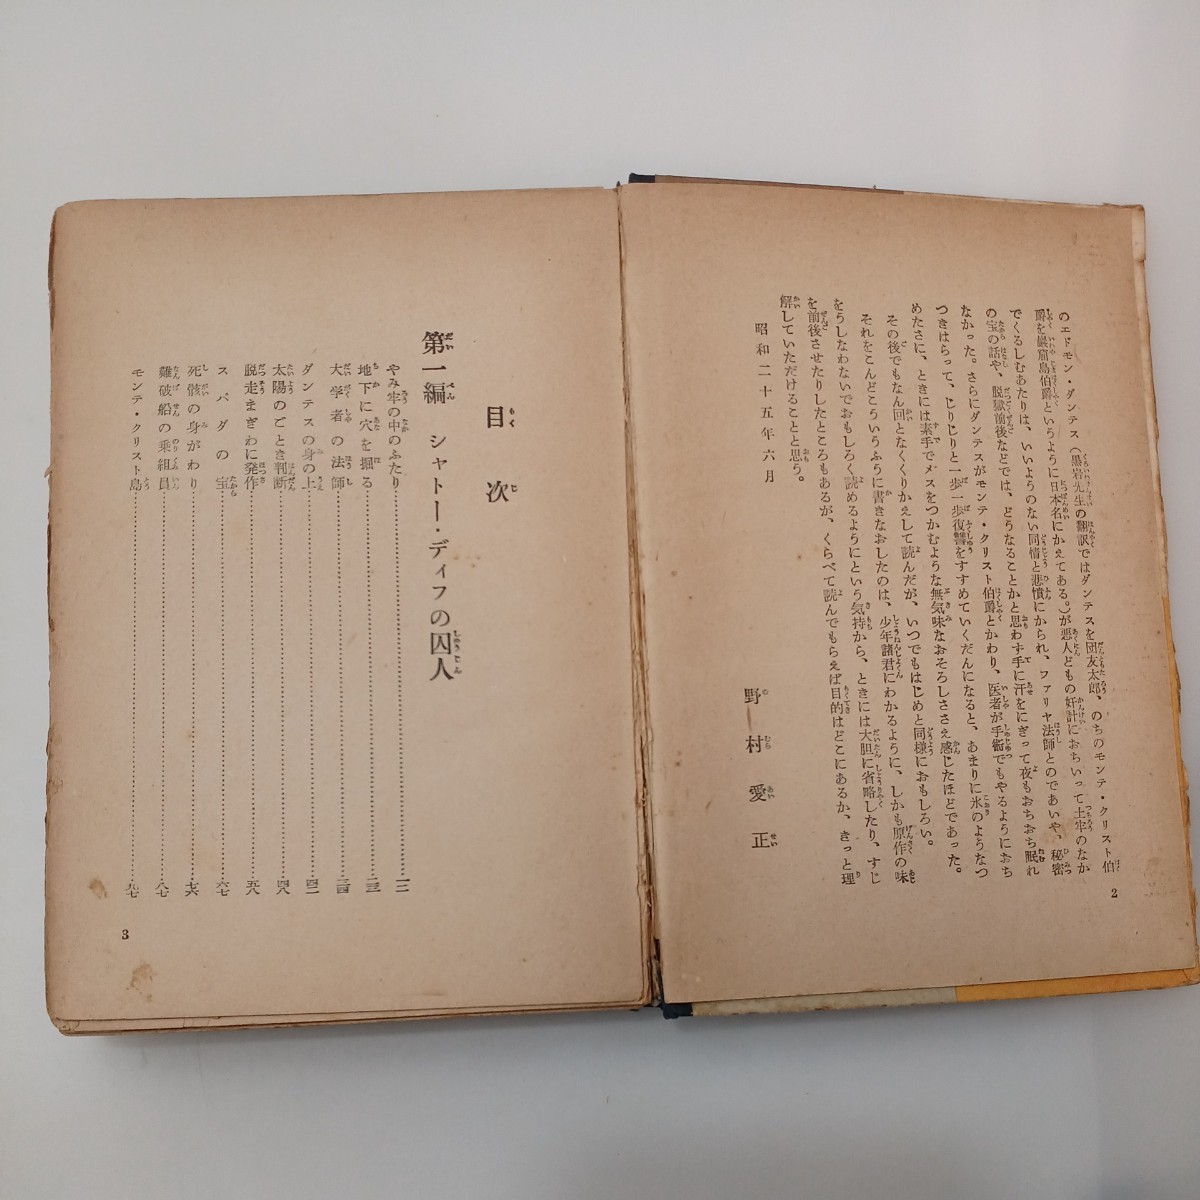 のエドモン・ダンテス(黒岩先生の翻訳ではダンテスを団友太郎、のちのモンテ・クリスト伯
爵を巌窟島伯爵というように日本名にかえてある。)が悪人どもの奸計におちいって土牢のなか
でくるしむあたりは、いいようのない同情と悲憤にかられ、ファリヤ法師とのであいや、秘密
の宝の話や、脱獄前後などでは、どうなることかと思わず手に汗をにぎって夜もおちおち眠れ
なかった。さらにダンテスがモンテ・クリスト伯爵とかわり、医者が手術でもやるようにおち
つきはらって、じりじりと一歩一歩復讐をすすめていくだんになると、あまりに氷のようなつ
めたさに、ときには素手でメスをつかむような無気味なおそろしささえ感じたほどであった。
その後でもなん回となくくりかえして読んだが、いつでもはじめと同様におもしろい。
それをこんどこういうふうに書きなおしたのは、少年諸君にわかるように、しかも原作の味
をうしなわないでおもしろく読めるようにという気持から、ときには大胆に省略したり、すじ
を前後させたりしたところもあるが、くらべて読んでもらえば目的はどこにあるか、きっと理
解していただけることと思う。
昭和二十五年六月
野村愛正
2
目次
第一編 シャトー・ディフの囚人
やみ牢の中のふたり……一二
地下に穴を掘る……二三
大学者の法師……三四
ダンテスの身の上……四二
太陽のごとき判断……四八
脱走まぎわに発作……五八
スパダの宝……六七
死骸の身がわり……七六
難破船の乗組員……八七
モンテ・クリスト島……九七
3